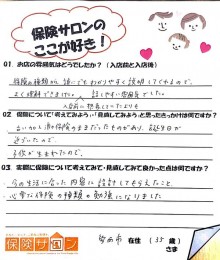 保険サロンの
ここが好き!
01 お店の雰囲気はどうでしたか?(入店前と入店後)
保険の種類から詳しくわかりやすく説明してくれるので、
よく理解できました。話しやすい雰囲気でした。
入店前に想像していたよりも
02 保険について「考えてみよう…」「見直してみよう」と思ったきっかけは何ですか?
保険のままだったものがあり、誕生日が
近づいたので。
子供が生まれたので。
03 実際に保険について考えてみて・見直してみて良かった点は何ですか?
今の生活に合った内容に設計してもらえたこと
必要な保険の種類の勉強になりました
保険サロン
在住 (35歳)
さま